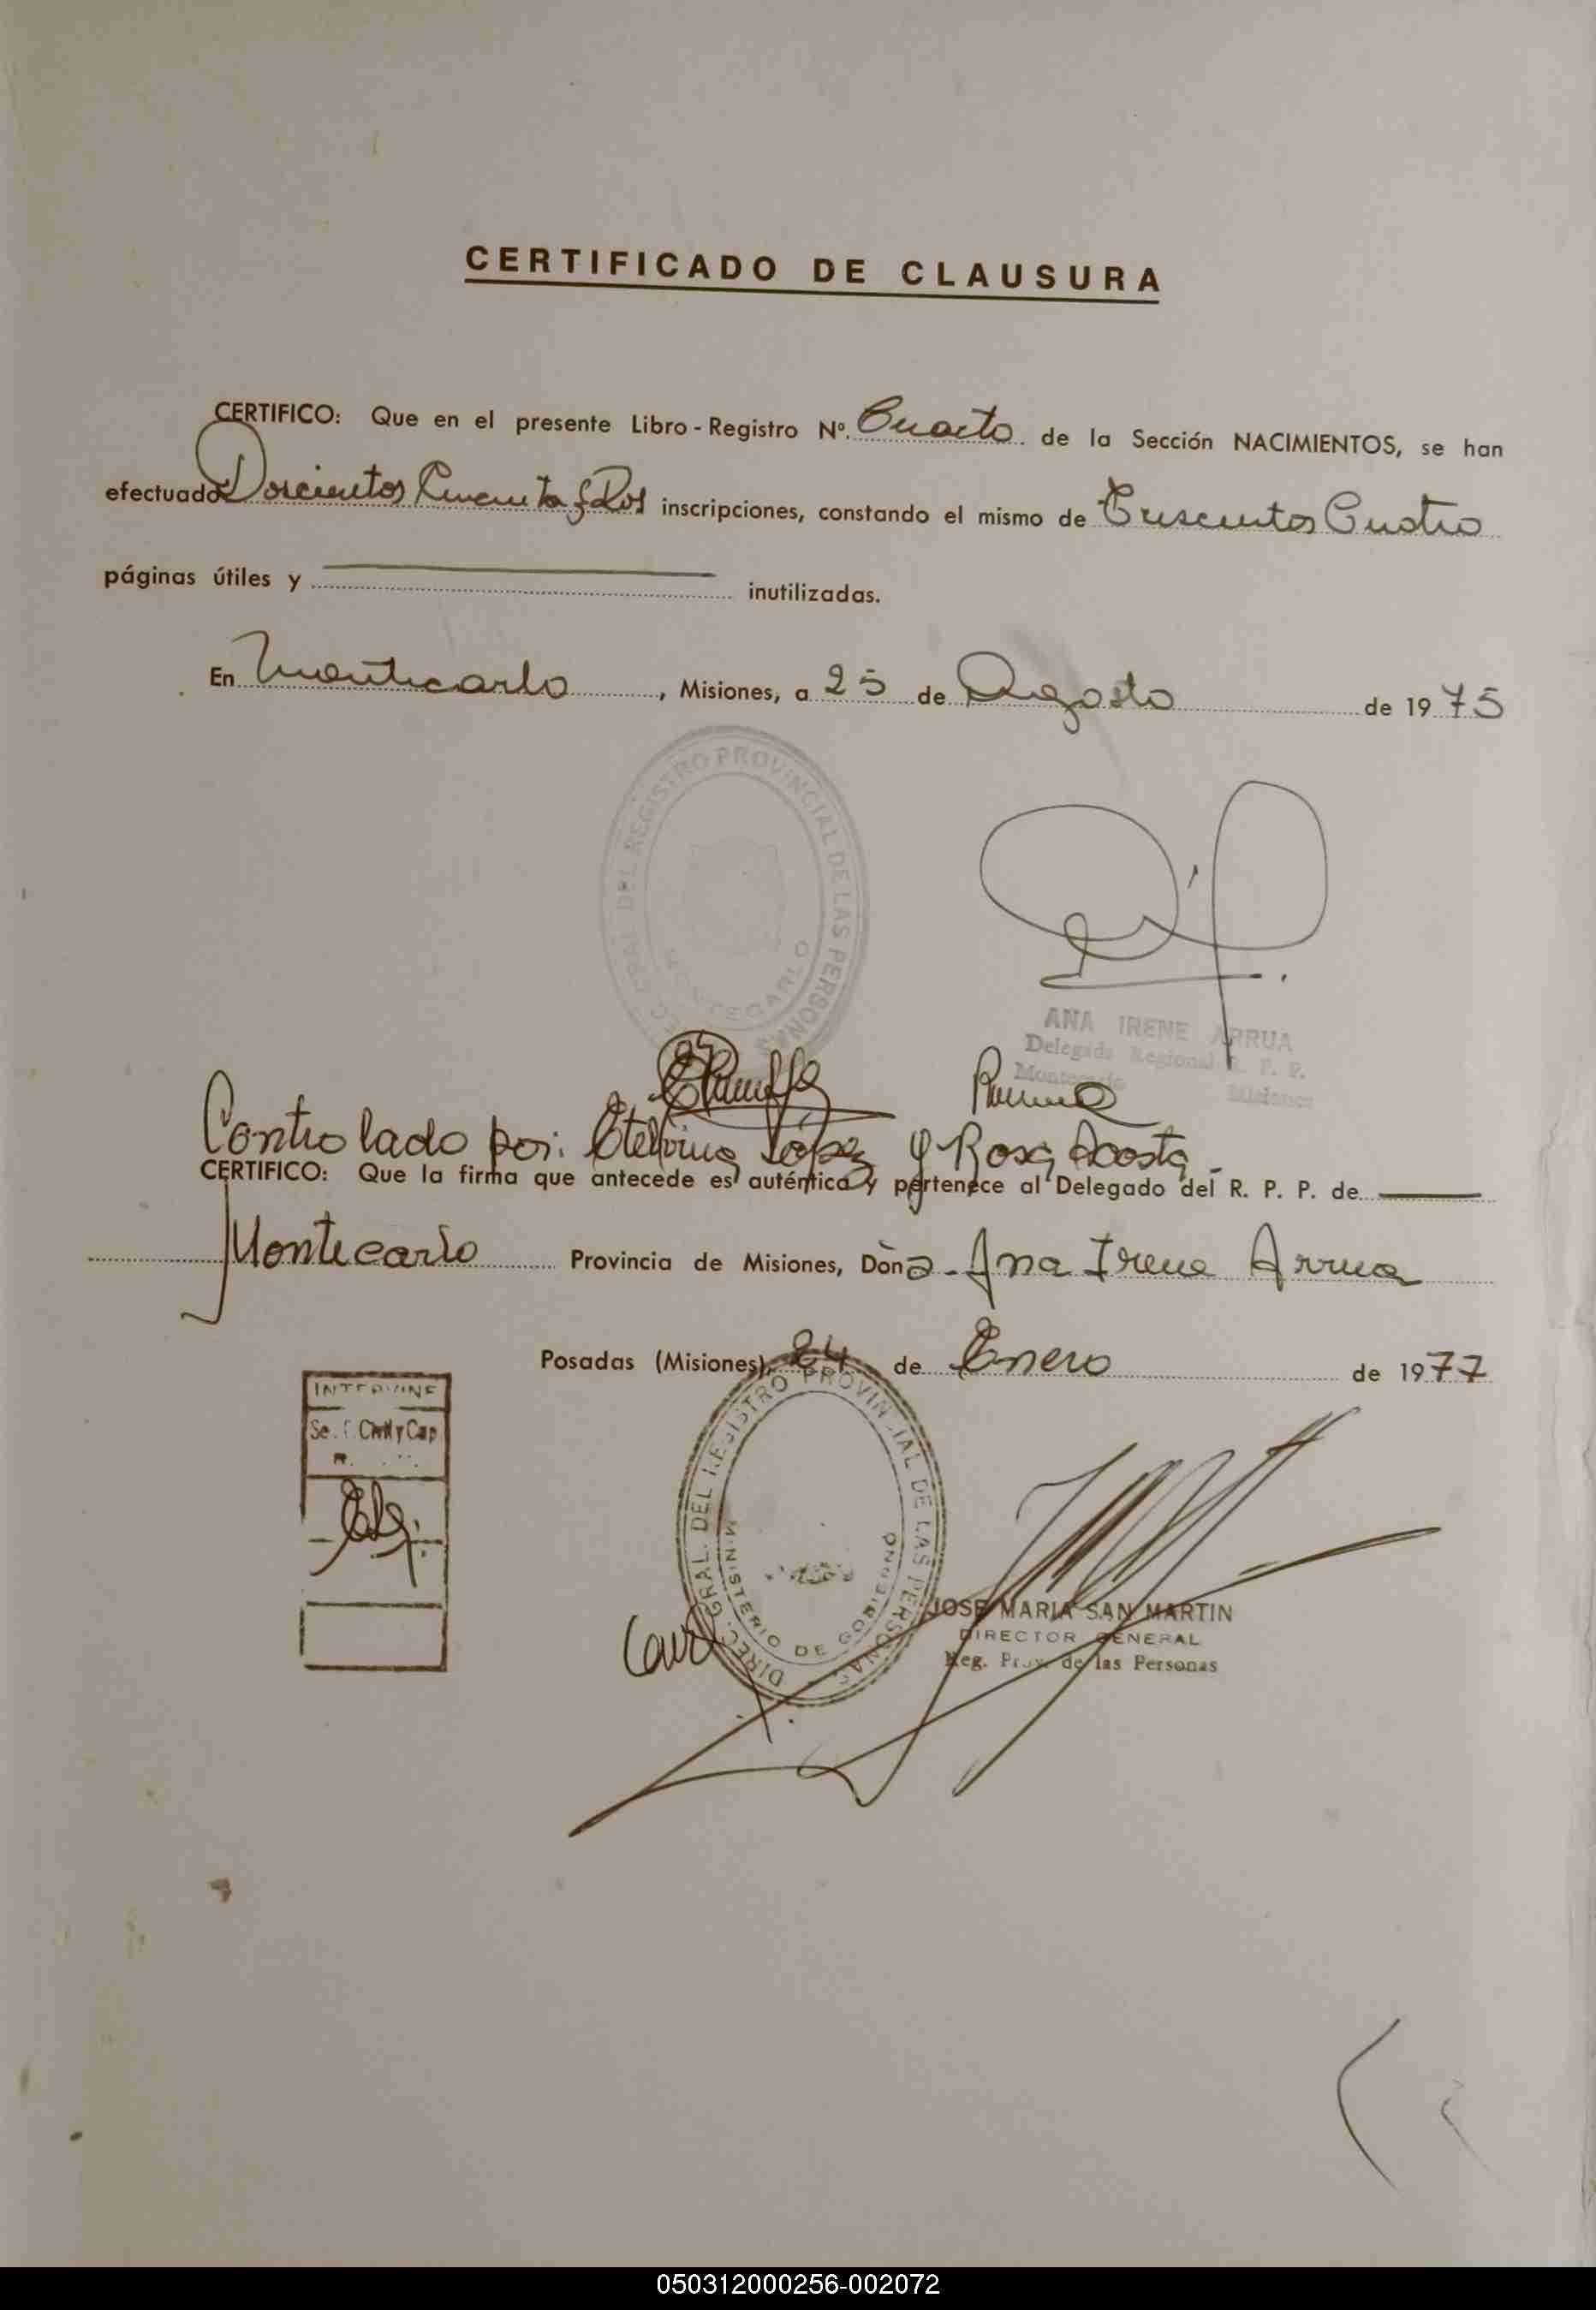 CERTIFICADO DE CLAUSURA
CERTIFICO: Que en el presente Libro - Registro Nº. Cuarto de la Sección NACIMIENTOS, se han
efectuado Doscientos Cincuenta y Dos inscripciones, constando el mismo de Trescientos Cuatro
páginas útiles y inutilizadas.
En Montecarlo, Misiones, a 25 de Agosto de 1975
DIREC. GRAL. DEL REGISTRO PROVINCIAL DE LAS PERSONAS
MONTECARLO
ANA IRENE ARRUA
Delegada Regional R. P. P.
Montecarlo Misiones
Controlado por: Etelvina López y Rosa Acosta.-
CERTIFICO: Que la firma que antecede es auténtica y pertenece al Delegado del R. P. P. de
Montecarlo Provincia de Misiones, Doña - Ana Irene Arrua
Posadas (Misiones), 24 de Enero de 1977
INTERVINE
Civil y Cap
DIREC. GRAL. DEL REGISTRO PROVINCIAL DE LAS PERSONAS
MINISTERIO DE GOBIERNO
JOSE MARIA SAN MARTIN
DIRECTOR GENERAL
Reg. Prov. de las Personas
050312000256-002072